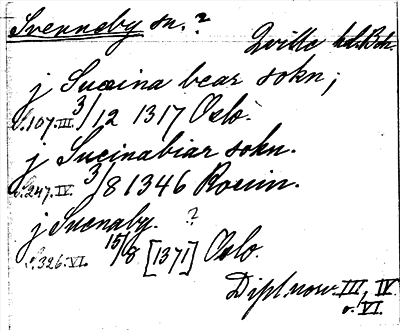 Svenneby sn. ?
Qville hd. Boh.
j Suæina bear sokn;
s. 107. III. 3/12 1317 Oslo.
j Sueinabiar sokn.
s. 247. IV. 3/8 1346 Roeiin.
j Suenaby. ?
s. 326. VI. 15/8 [1371] Oslo.
Dipl. norv. III, IV
o. VI.